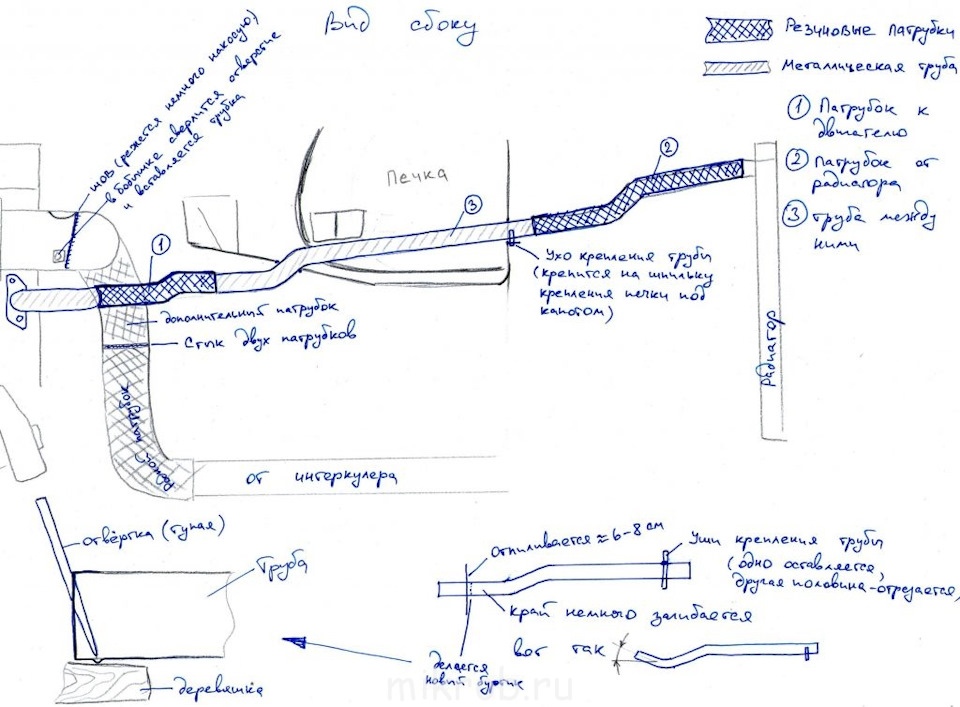 Вид сбоку
Резиновые патрубки
Металлическая труба
1 Патрубок к
двигателю
2 Патрубок от
радиатора
3 труба между
ними
шов (режется немного накосую)
в бобышке сверлится отверстие
и вставляется трубка
Печка
1
2
3
Ухо крепления трубы
(крепится на шпильку
крепления печки под
капотом)
дополнительный патрубок
Стык двух патрубков
Радиатор
родной патрубок
от интеркулера
отвёртка (тупая)
Труба
деревяшка
Отпиливается ≈ 6-8 см
Уши крепления трубы
(одно оставляется,
другая половина-отрезается,
край немного загибается
вот так
делается
новый буртик